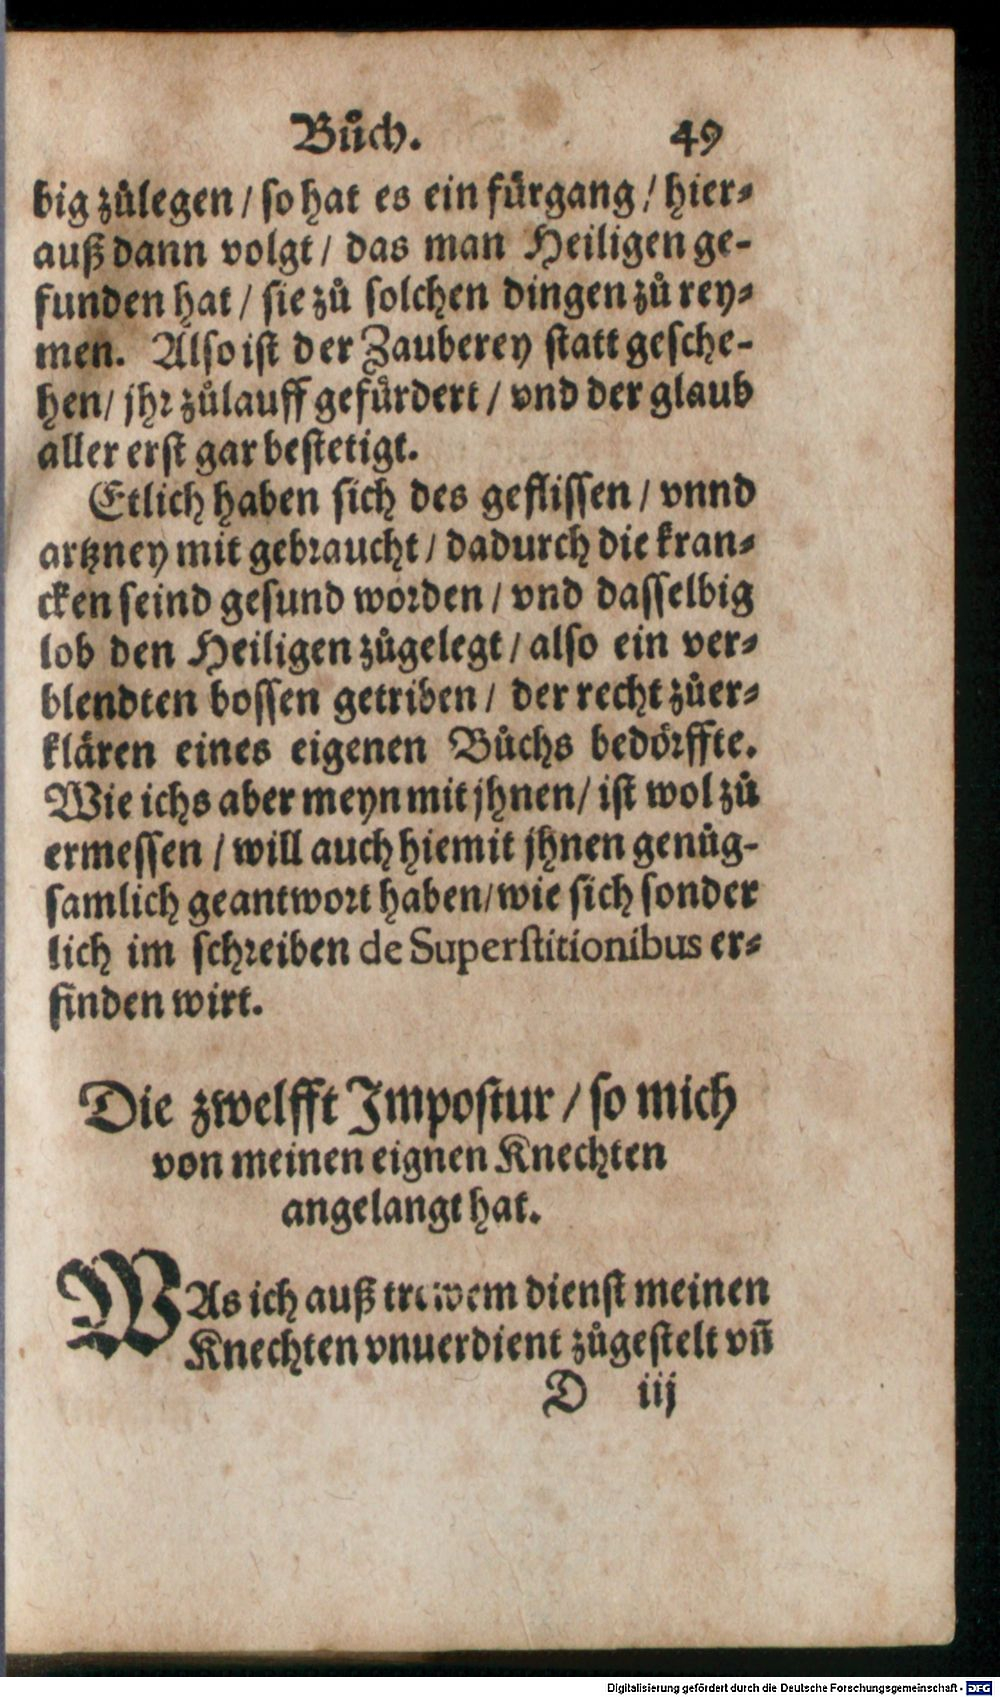 Bůch. 49
big zůlegen / so hat es ein fürgang / hier-
auß dann volgt / das man Heiligen ge-
funden hat / sie zů solchen dingen zů rey-
men. Also ist der Zauberey statt gesche-
hen / jhr zůlauff gefürdert / vnd der glaub
aller erst gar bestetigt.
Etlich haben sich des geflissen / vnnd
artzney mit gebraucht / dadurch die kran-
cken seind gesund worden / vnd dasselbig
lob den Heiligen zůgelegt / also ein ver-
blendten bossen getriben / der recht zůer-
klären eines eigenen Bůchs bedörffte.
Wie ichs aber meyn mit jhnen / ist wol zů
ermessen / will auch hiemit jhnen genůg-
samlich geantwort haben / wie sich sonder
lich im schreiben de Superstitionibus er-
finden wirt.
Die zwelfft Impostur / so mich
von meinen eignen Knechten
angelangt hat.
WAs ich auß trewem dienst meinen
Knechten vnuerdient zůgestelt vñ
D iij
Digitalisierung gefördert durch die Deutsche Forschungsgemeinschaft - DFG